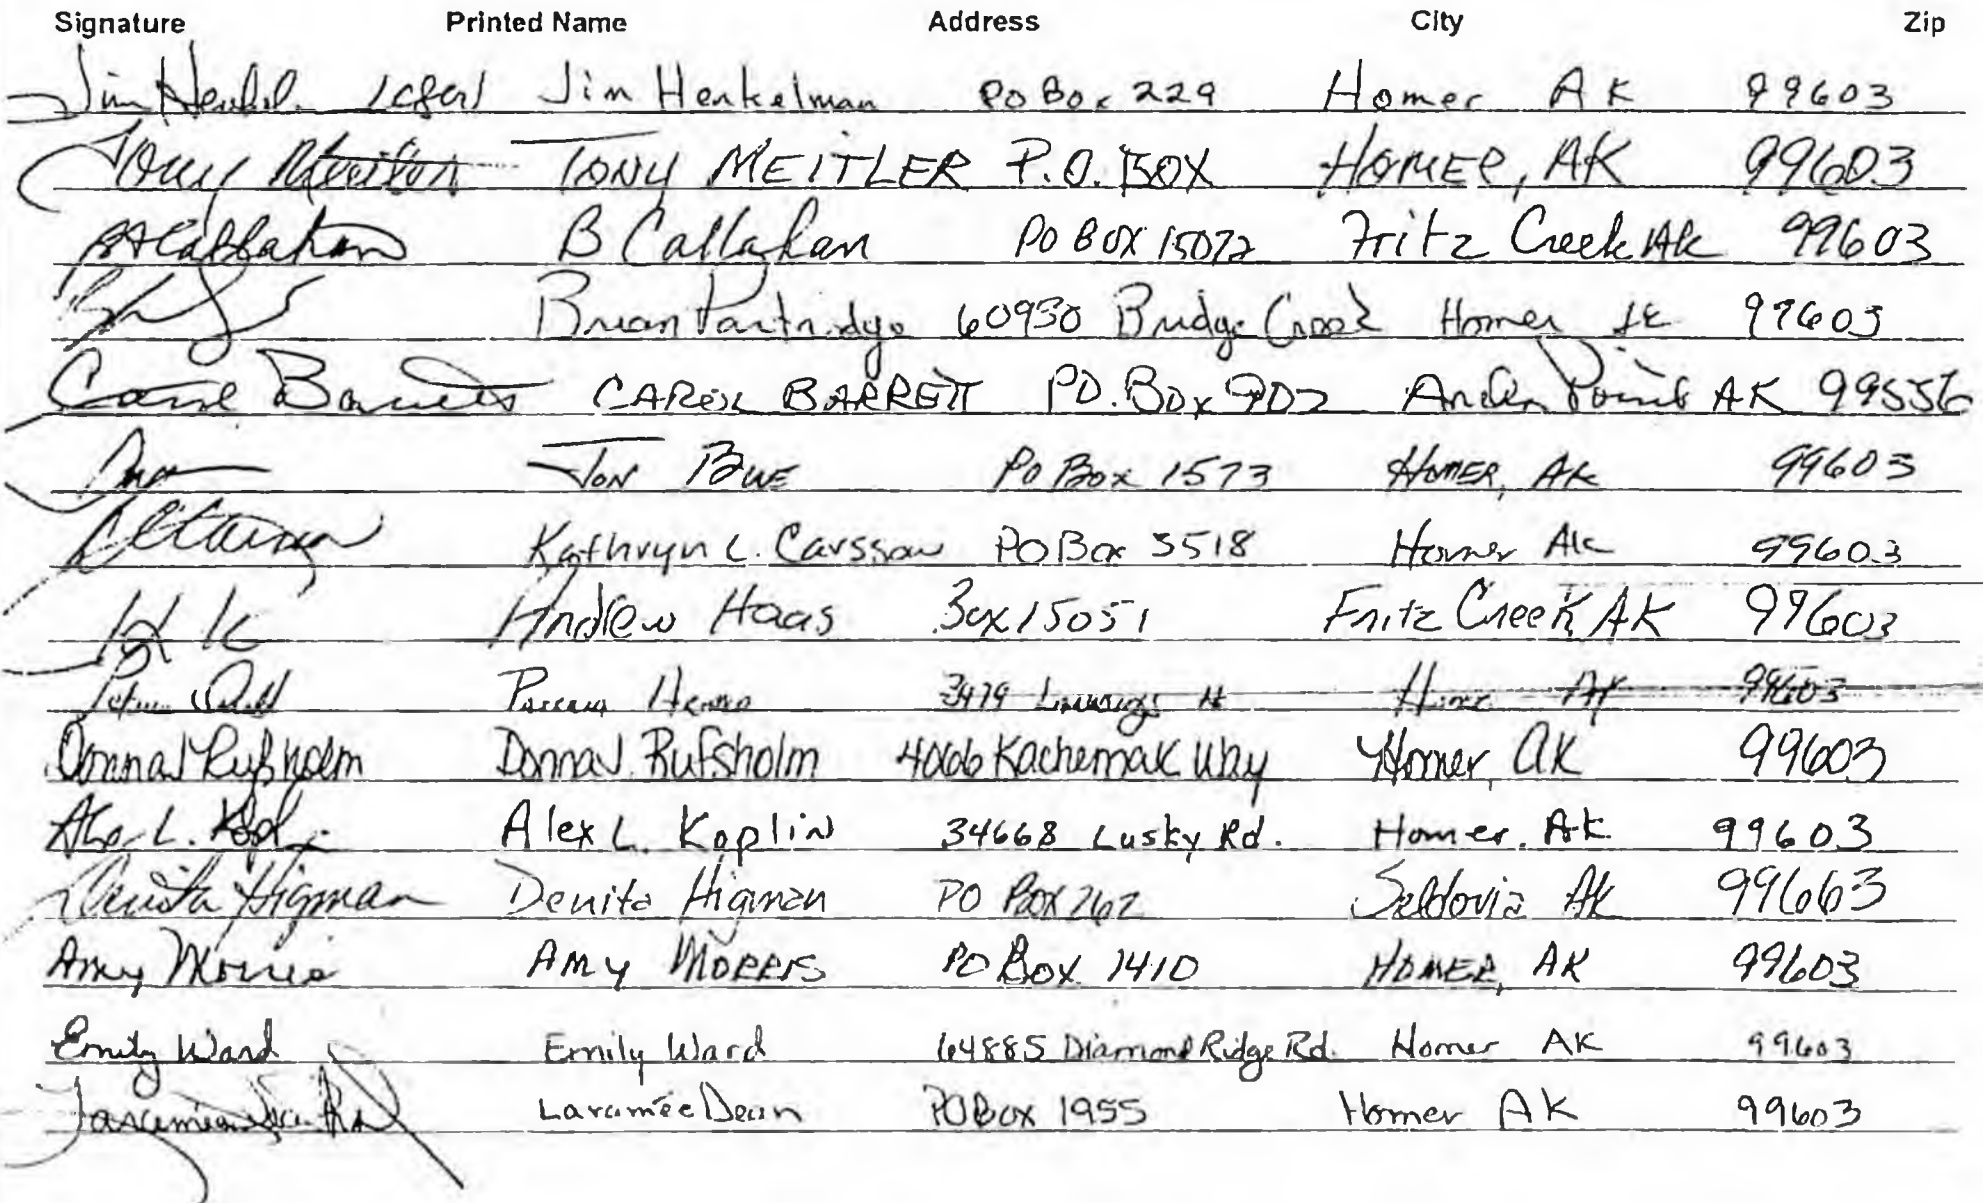 Signature Printed Name Address City Zip
Jim Jim Henkelman PO Box 229 Homer AK 99603
Tony TONY MEITLER P.O. BOX HOMER, AK 99603
Callahan B Callahan PO BOX 15072 Fritz Creek AK 99603
Brian Partridge 60930 Bridge Creek Homer AK 99603
Barrett CAROL BARRETT PO. Box 902 Anchor Point AK 99556
JON BUE PO Box 1573 HOMER, AK 99603
Kathryn L. Carssow PO Box 3518 Homer AK 99603
Andrew Haas Box 15051 Fritz Creek AK 99603
3479 99603
Donna J Rufsholm Donna J. Rufsholm 4066 Kachemak Way Homer, AK 99603
Alex L. Alex L. Koplin 34668 Lusky Rd. Homer, AK 99603
Denita Higman Denita Higman PO Box 262 Seldovia AK 99663
Amy Morris AMY MORRIS PO Box 1410 HOMER, AK 99603
Emily Ward Emily Ward 64885 Diamond Ridge Rd. Homer AK 99603
Laramee Dean PO Box 1955 Homer AK 99603